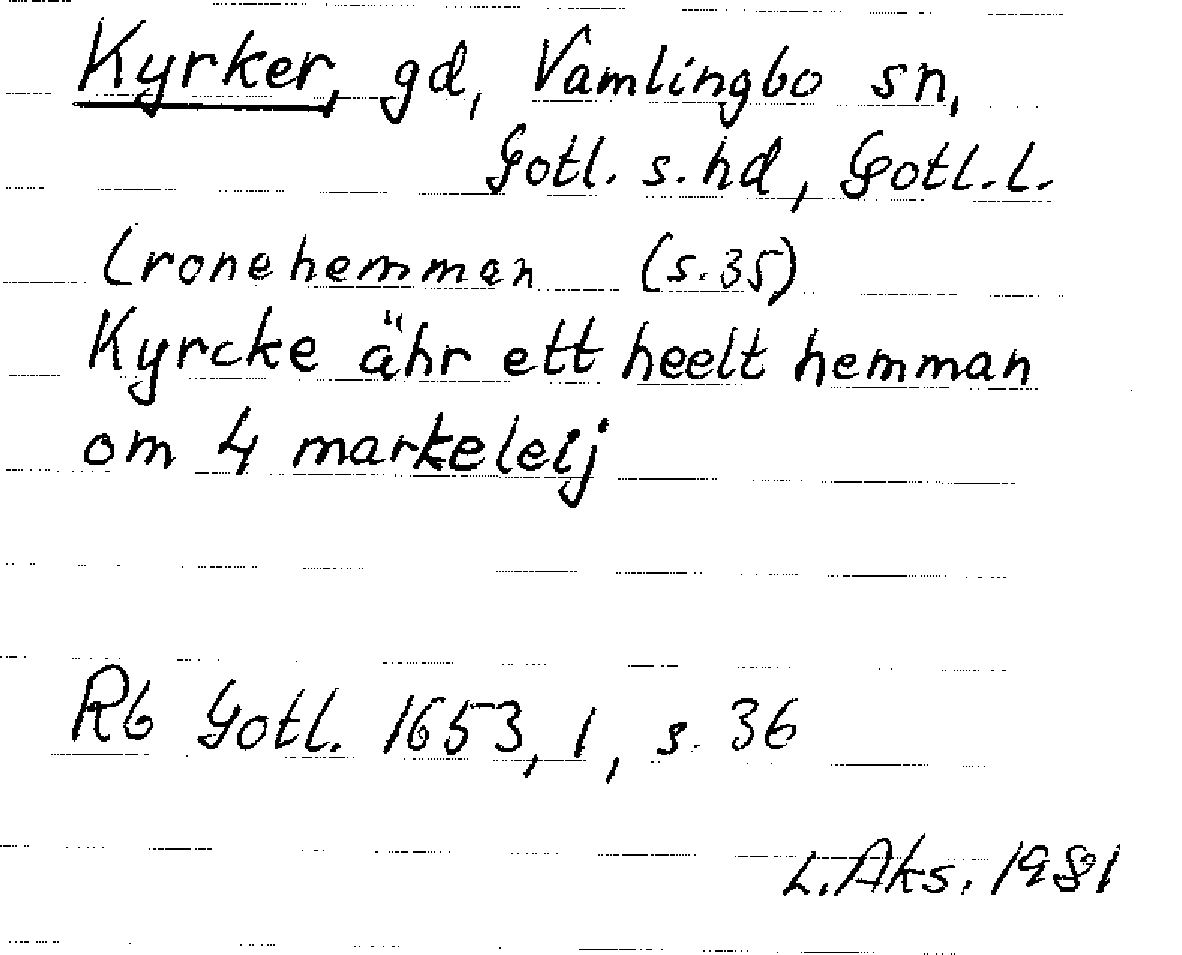 Kyrker, gd, Vamlingbo sn,
Gotl. s. hd, Gotl. l.
Cronehemman (s. 35)
Kyrcke ähr ett heelt hemman
om 4 markeleij
Rb Gotl. 1653, 1, s. 36
L. Aks. 1981